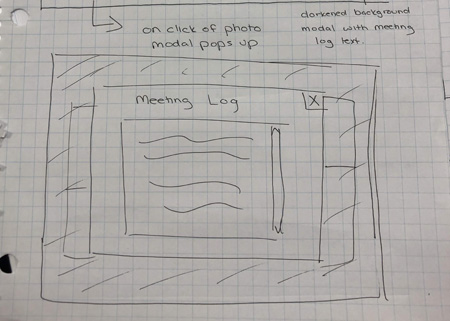 on click of photo
modal pops up
darkened background
modal with meeting
log text.
Meeting Log
X